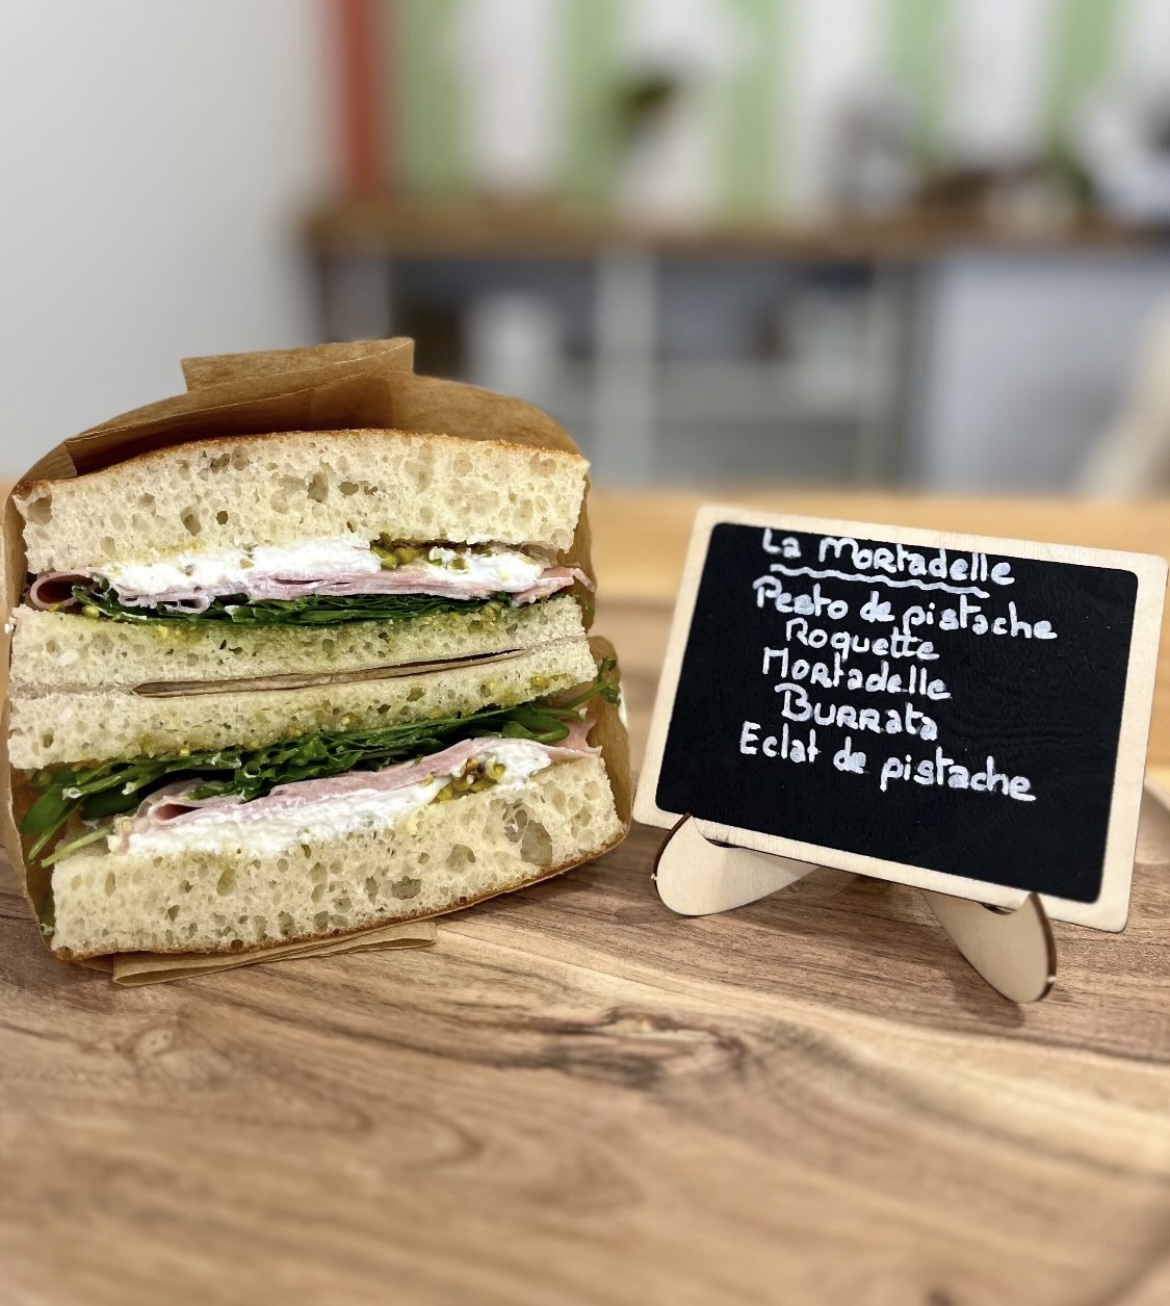 La Mortadelle
Pesto de pistache
Roquette
Mortadelle
Burrata
Eclat de pistache